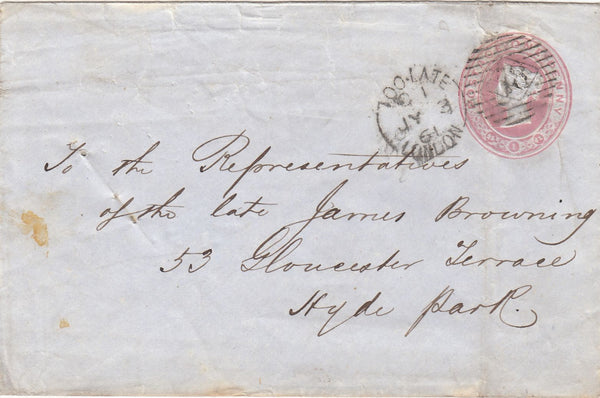 TOO-LATE
LONDON
To the Representatives
of the late James Browning
53 Gloucester Terrace
Hyde Park.